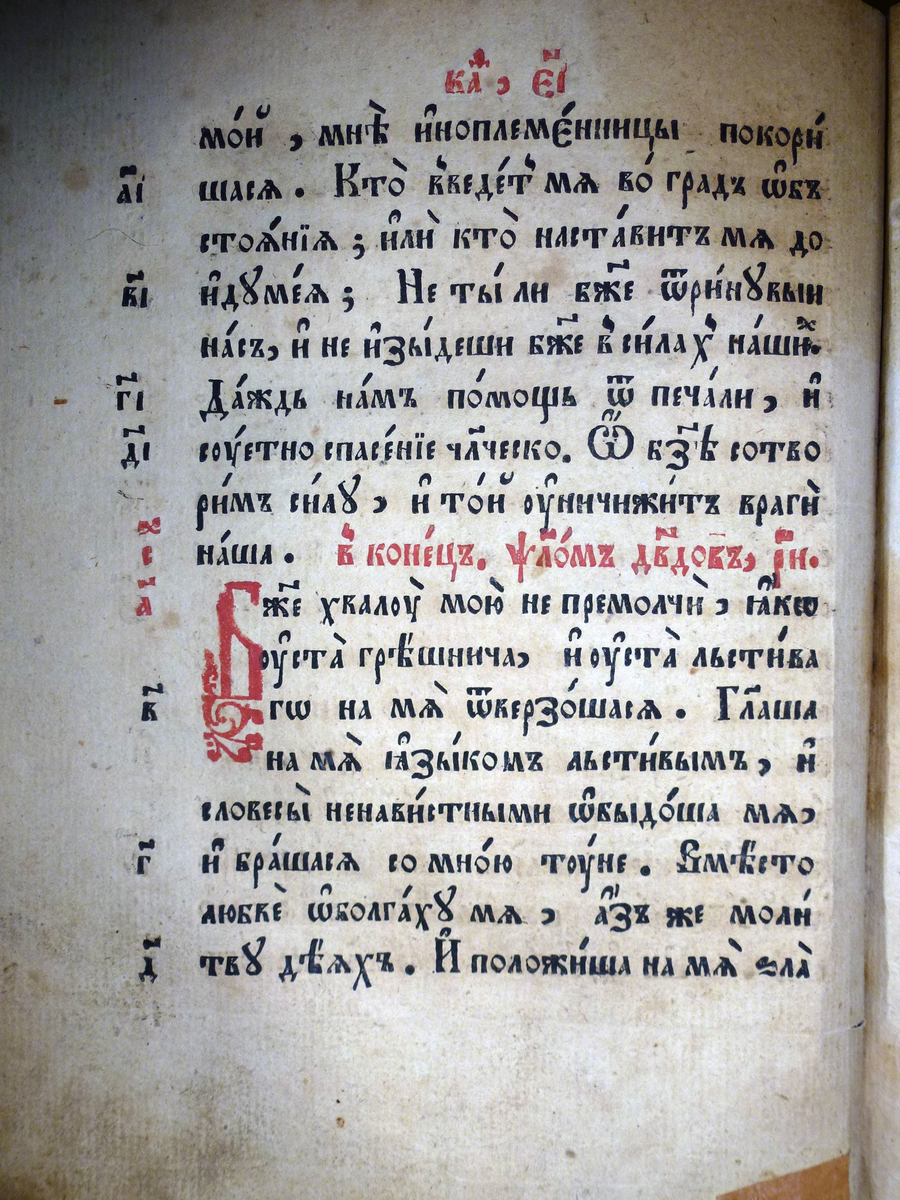 ка҃ , є҃і
мо́й , мнѣ̀ и҆ноплеме́нницы покори́
а҃і шася . Кто̀ в̾веде́т̾ мѧ во́ градъ ѡ҆бъ
стоѧ́нїѧ ; и҆лѝ кто̀ наста́витъ мѧ до
в҃і и҆дꙋме́ѧ ; Не ты́ ли бж҃е ѿри́нꙋвыи
на́съ, и҆ не и҆зы́деши бж҃е в̾ си́лах̾ на́ших.
г҃і Да́ждь на́мъ по́мощь ѿ печа́ли , и҆
д҃і соу́етно спасе́нїе чл҃ческо. Ѡ҆ бз҃ѣ сотво
ри́мъ си́лꙋ , и҆ то́й оу҆ничижи́тъ врагѝ
с на́ша . в̾ коне́цъ. ѱл҃о́мъ дв҃дов̾ъ, р҃и.
а҃ Бж҃е хвалоу̀ мою̀ не премолчѝ , ꙗ҆́кѡ
оу҆ста̀ грѣ́шнича, и҆ оу҆ста̀ льсти́ва
в҃ гѡ на мѧ̀ ѿверзо́шасѧ . Гл҃аша
на мѧ̀ ꙗ҆зы́комъ льсти́вымъ , и҆
словесы̀ ненави́стными ѡ҆быдо́ша мѧ,
г҃ и҆ бра́шасѧ со мно́ю тоу́не . Вмѣ́сто
любвѐ ѡ҆болга́хꙋ мѧ , а҆́зъ же моли́
д҃ твꙋ дѣ́ѧхъ . И҆ положи́ша на мѧ̀ ѕла̀